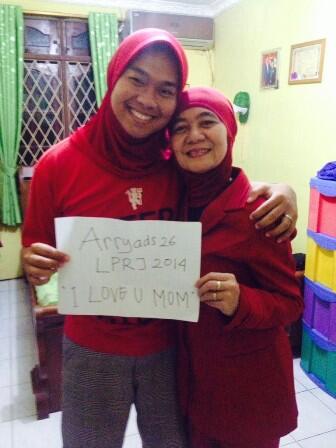 Arryads 26
LPRJ 2014
"I LOVE U MOM"